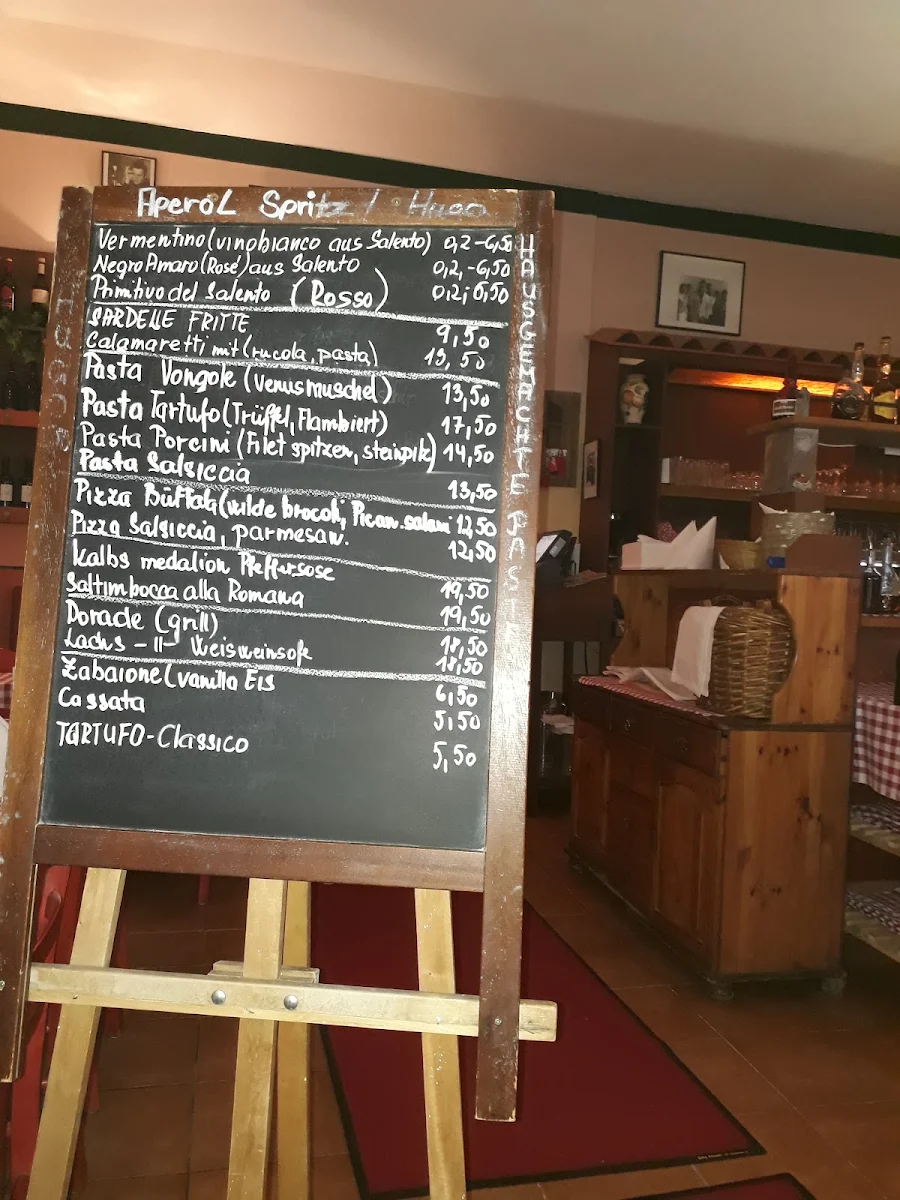 Aperol Spritz / Hugo
Vermentino (vino bianco aus Salento) 0,2 - 6,50
Negro Amaro (Rosé) aus Salento 0,2,-6,50
Primitivo del Salento (Rosso) 0,2; 6,50
SARDELLE FRITTE 9,50
Calamaretti mit (rucola, pasta) 13,50
Pasta Vongole (Venusmuschel) 13,50
Pasta Tartufo (Trüffel, Flambiert) 17,50
Pasta Porcini (Filet spitzen, steinpilz) 14,50
Pasta Salsiccia 13,50
Pizza Büffala (wilde brocoli, Pican. salami 12,50
Pizza Salsiccia, parmesan. 12,50
Kalbs medalion Pfeffersose 19,50
Saltimbocca alla Romana 19,50
Dorade (grill) 18,50
Lachs - 11 - Weisweinsoße 18,50
Zabaione (vanilla Eis 6,50
Cassata 5,50
TARTUFO - Classico 5,50
HAUSGEMACHTE PAST